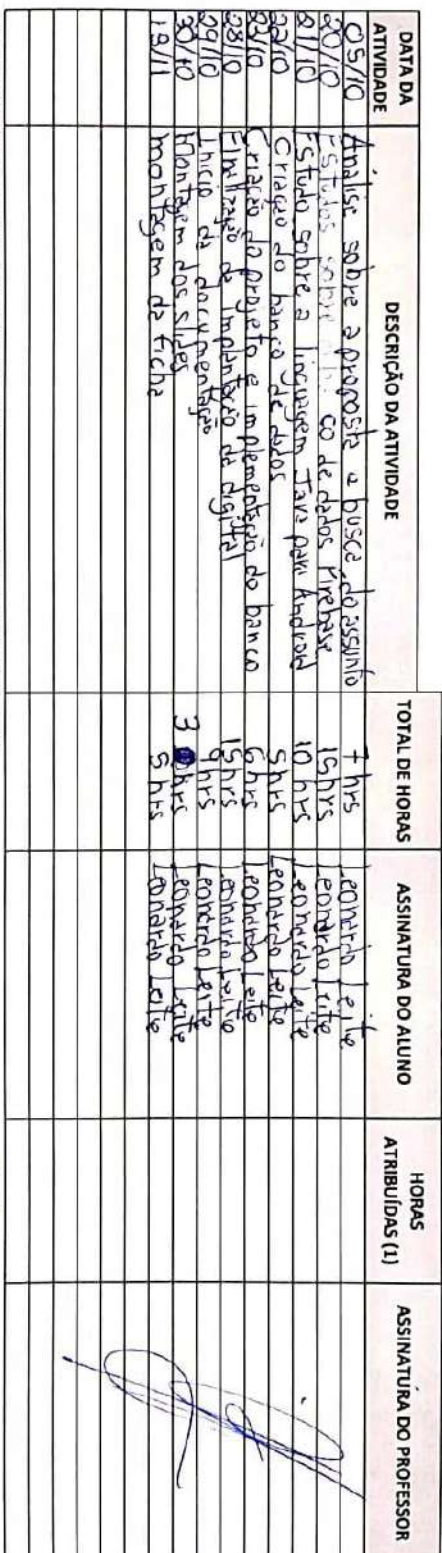 DATA DA ATIVIDADE DESCRIÇÃO DA ATIVIDADE TOTAL DE HORAS ASSINATURA DO ALUNO HORAS ATRIBUÍDAS (1) ASSINATURA DO PROFESSOR
05/10 Análise sobre a proposta e busca do assunto 7 hrs Leonardo Leite
20/10 Estudos sobre co de dados Firebase 15hrs Leonardo Leite
21/10 Estudo sobre a linguagem Java para Android 10 hrs Leonardo Leite
22/10 Criação do banco de dados 5hrs Leonardo Leite
23/10 Criação do projeto e implementação do banco 6hrs Leonardo Leite
28/10 Finalização da implantação da digital 15hrs Leonardo Leite
29/10 Início da documentação 9hrs Leonardo Leite
30/10 Montagem dos slides 3 hrs Leonardo Leite
19/11 montagem da ficha 5 hrs Leonardo Leite